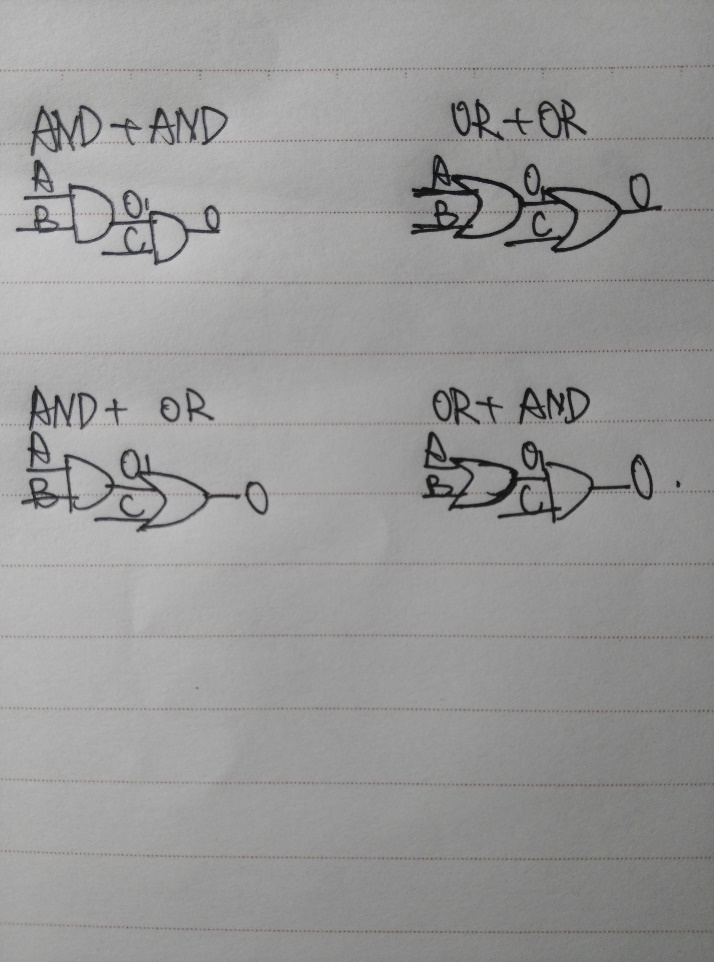 AND + AND
A
B
O1
C
O
OR + OR
A
B
O1
C
O
AND + OR
A
B
O1
C
O
OR + AND
A
B
O1
C
O